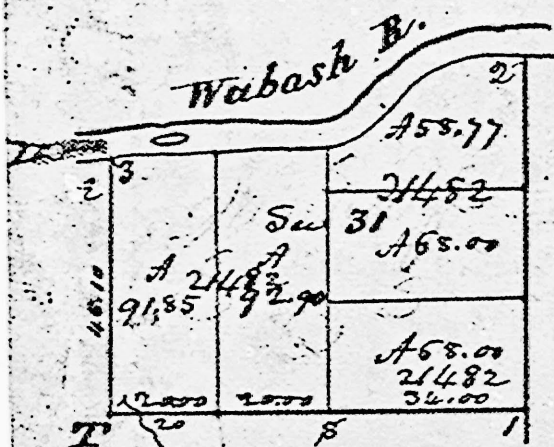 Wabash R.
2
A 58.77
3
2
21482
Sec 31
A 68.00
A
A
2148
91.85
92.90
46.10
A 68.00
21482
34.00
20.00
20
1